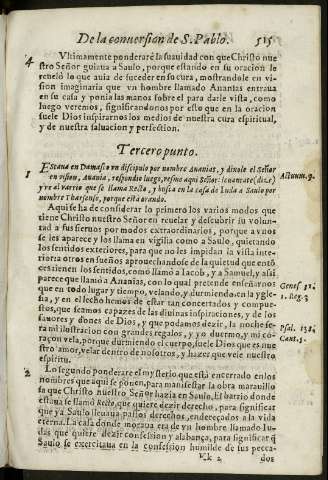 De la conuersion de S. Pablo. 515
4 Vltimamente ponderaré la suauidad con que Christo nue
stro Señor guiaua a Saulo, porque estando en su oracion le
reueló lo que auia de suceder en su cura, mostrandole en vi-
sion imaginaria que vn hombre llamado Ananias entraua
en su casa y ponia las manos sobre el para darle vista, como
luego veremos, significandonos por esto que en la oracion
suele Dios inspirarnos los medios de nuestra cura espiritual,
y de nuestra saluacion y perfection.
Tercero punto.
1 Estaua en Damasco vn discipulo por nombre Ananias, y dixole el Señor
en vision, Anania, respondio luego, vesme aqui Señor: leuantate (dize)
y ve al varrio que se llama Recto, y busca en la casa de Iuda a Saulo por
nombre Tharsense, porque está orando.
Actuum. 9.
Aqui se ha de considerar lo primero los varios modos que
tiene Christo nuestro Señor en reuelar y descubrir su volun-
tad a sus sieruos por modos extraordinarios, porque a vnos
se les aparece y los llama en vigilia como a Saulo, quietando
los sentidos exteriores, para que no les impidan la vista inte-
riora otros en sueños aprouechandose de la quietud que entõ
ces tienen los sentidos, como llamó a Iacob, y a Samuel, y assi
parece que llamó a Ananias, con lo qual pretende enseñarnos
que en todo lugar y tiempo, velando, y durmiendo, en la ygle-
sia, y en el lecho hemos de estar tan concertados y compue-
stos, que seamos capaces de las diuinas inspiraciones, y de los
fauores y dones de Dios, y que podamos dezir, la noche se-
ra mi illustracion con grandes regalos, y yo duermo, y mi co
raçon vela, porque durmiendo el cuerpo, suele Dios es nue
stro amor, velar dentro de nosotros, y hazer que vele nuestro
espiritu.
Genes.
1. Reg. 3
Psal. 138.
Cant. 5.
2 Lo segundo ponderaré el mysterio que está encerrado en los
nombres que aqui se ponen, para manifestar la obra marauillo
sa que Christo nuestro Señor hazia en Saulo. El barrio donde
estaua se llamó Recto, que quiere dezir derecho, para significar
que ya Saulo lleuaua passos derechos, endereçados a la vida
eterna. La casa donde moraua era de vn hombre llamado Iu-
das que quiere dezir confession y alabança, para significar q̃
Saulo se exercitaua en la confession humilde de sus pecca-
Kk 2 dos